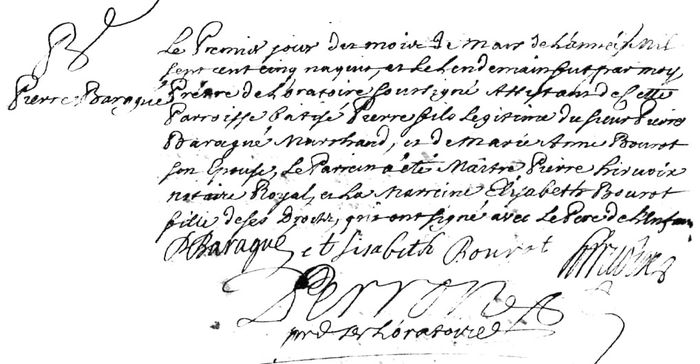 B
Pierre Baraqué
Le Premier jour du mois de mars de l'année Mil
sept cent cinq naquit, et le lendemain fut par moy
Prêtre de l'oratoire soussigné Assistant de Cette
Parroisse batisé Pierre fils legitime du sieur Pierre
Baraqué Marchand, et de marie Anne Bourot
son Epouse, Le Parrein a été Maître Pierre
notaire Royal, et La Marreine Elizabeth Bourot
fille de ses Droits, qui ont signé avec Le Pere de l'Enfan
P Baraqué elisabeth Bourot
Perron
pre de l'oratoire